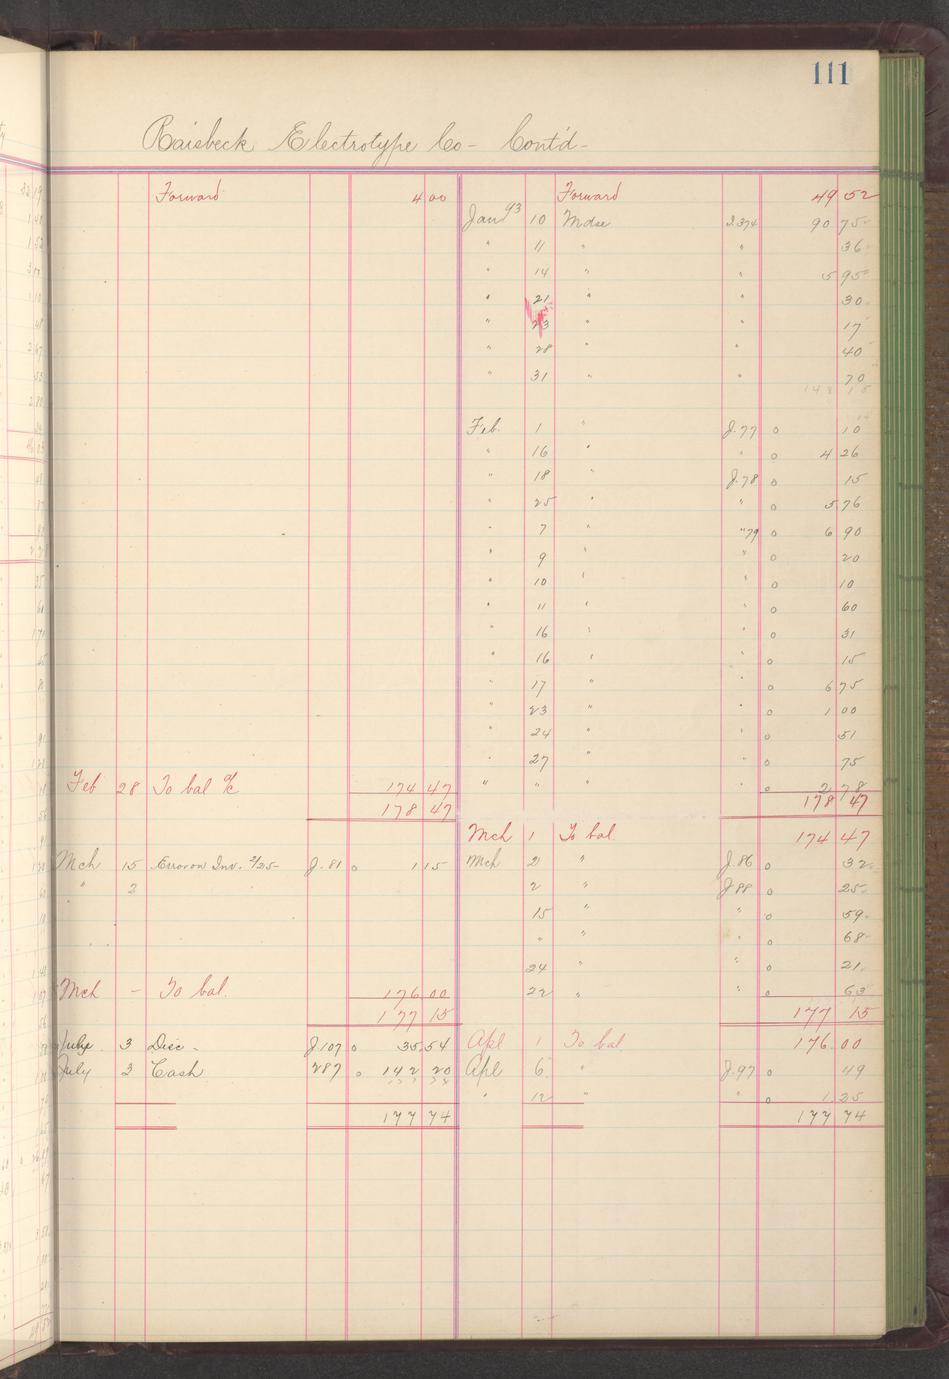 111
Raisbeck Electrotype Co - Cont'd -
Forward 4 00 Forward 49 52
Jan 93 10 Mdse I.374 90 75
" 11 " " 36
" 14 " " 5 95
" 21 " " 30
" 23 " 17
" 28 " " 40
" 31 " " 70
148 15
Feb. 1 " J.77 o 10
" 16 " " o 4 26
" 18 " J.78 o 15
" 25 " " o 5 76
" 7 " "79 o 6 90
" 9 " " o 20
" 10 " " o 10
" 11 " " o 60
" 16 " " o 31
" 16 " " o 15
" 17 " " o 6 75
" 23 " " o 1 00
" 24 " " o 51
" 27 " " o 75
Feb 28 To bal a/c 174 47 " " " " o 2 78
178 47 178 47
Mch 1 To bal. 174 47
Mch 15 Error on Inv. 2/25- J.81 o 1 15 Mch 2 " J.86 o 32
" 2 2 " J 88 o 25
15 " " o 59
" " " o 68
24 " " o 21
Mch - To bal. 176 00 22 " " o 63
177 15 177 15
July 3 Disc - J.107 o 35.54 Apl 1 To bal 176.00
July 3 Cash 287 o 142 20 Apl 6 " J.97 o 49
" 12 " " o 1.25
177 74 177 74